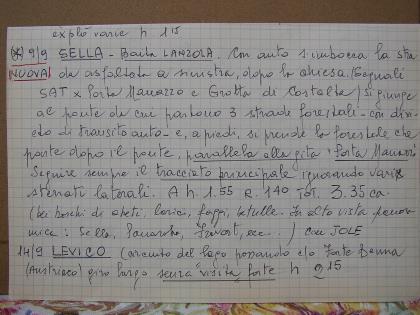 explò varie h 1 15
(*) 9/9 SELLA - Baita LANZOLA. Con auto s'imbocca la stra
NUOVA da asfaltata a sinistra, dopo la chiesa. (Segnali
SAT x Porta Manazzo e Grotta di Costalta) si giunge
al ponte da cui partono 3 strade forestali - con divi
eto di transito auto - e, a piedi, si prende la forestale che
parte dopo il ponte, parallela alla gita "Porta Manazzo
Seguire sempre il tracciato principale ignorando varie
sterrati laterali. A h 1.55 R. 1 40 Tot. 3.35 ca.
(bei boschi di abeti, larici, faggi, betulle. In alto vista panora
mica: Sella, ecc.) con JOLE
14/9 LEVICO (circuito del lago passando c/o Forte Benna
(Austriaco) giro lungo senza "visita" forte h 2 15